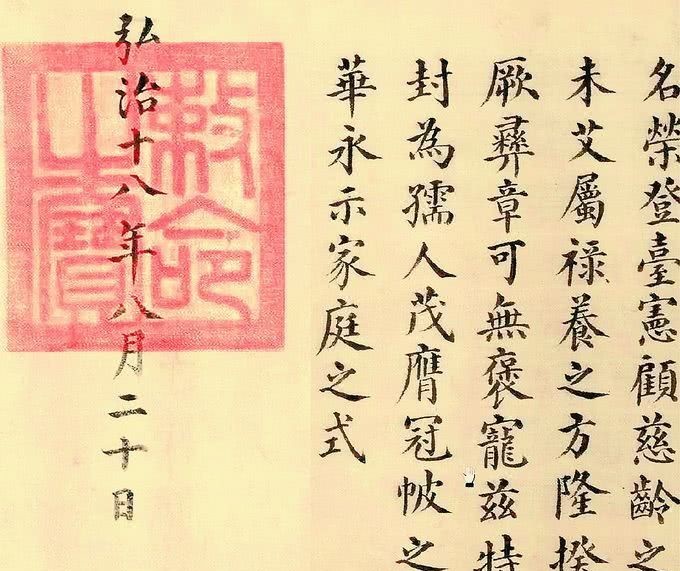 名榮登臺憲顧慈齡之
未艾屬祿養之方隆揆
厥彝章可無褒寵茲特
封為孺人茂膺冠帔之
華永示家庭之式
弘治十八年八月二十日
敕命之寶